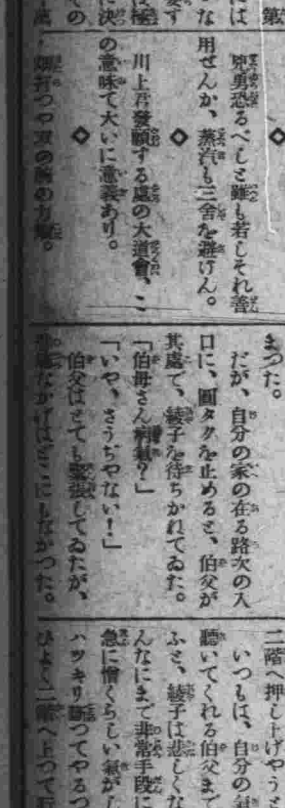 第
は
な
兇勇恐るべしと雖も若しそれ善
用せんか、蒸汽も三舍を避けん。
◇
川上君發願する處の大道會、こ
の意味で大いに意義あり。
◇
まつた。
だが、自分の家の在る路次の入
口に、圓タクを止めると、伯父が
其處で、綾子を待ちかれてゐた。
「伯母さん病氣?」
「いや、さうぢやない!」
伯父はとても緊張してゐたが、
なかげはどこにもなかつた。
二階へ押し上げやうと
いつもは、自分の氣
聽いてくれる伯父まで
ふと、綾子は悲しくな
んなにまで非常手段に
急に憎くらしい氣がし
ハツキリ斷つてやるつ
ひよく二階へ上つて行